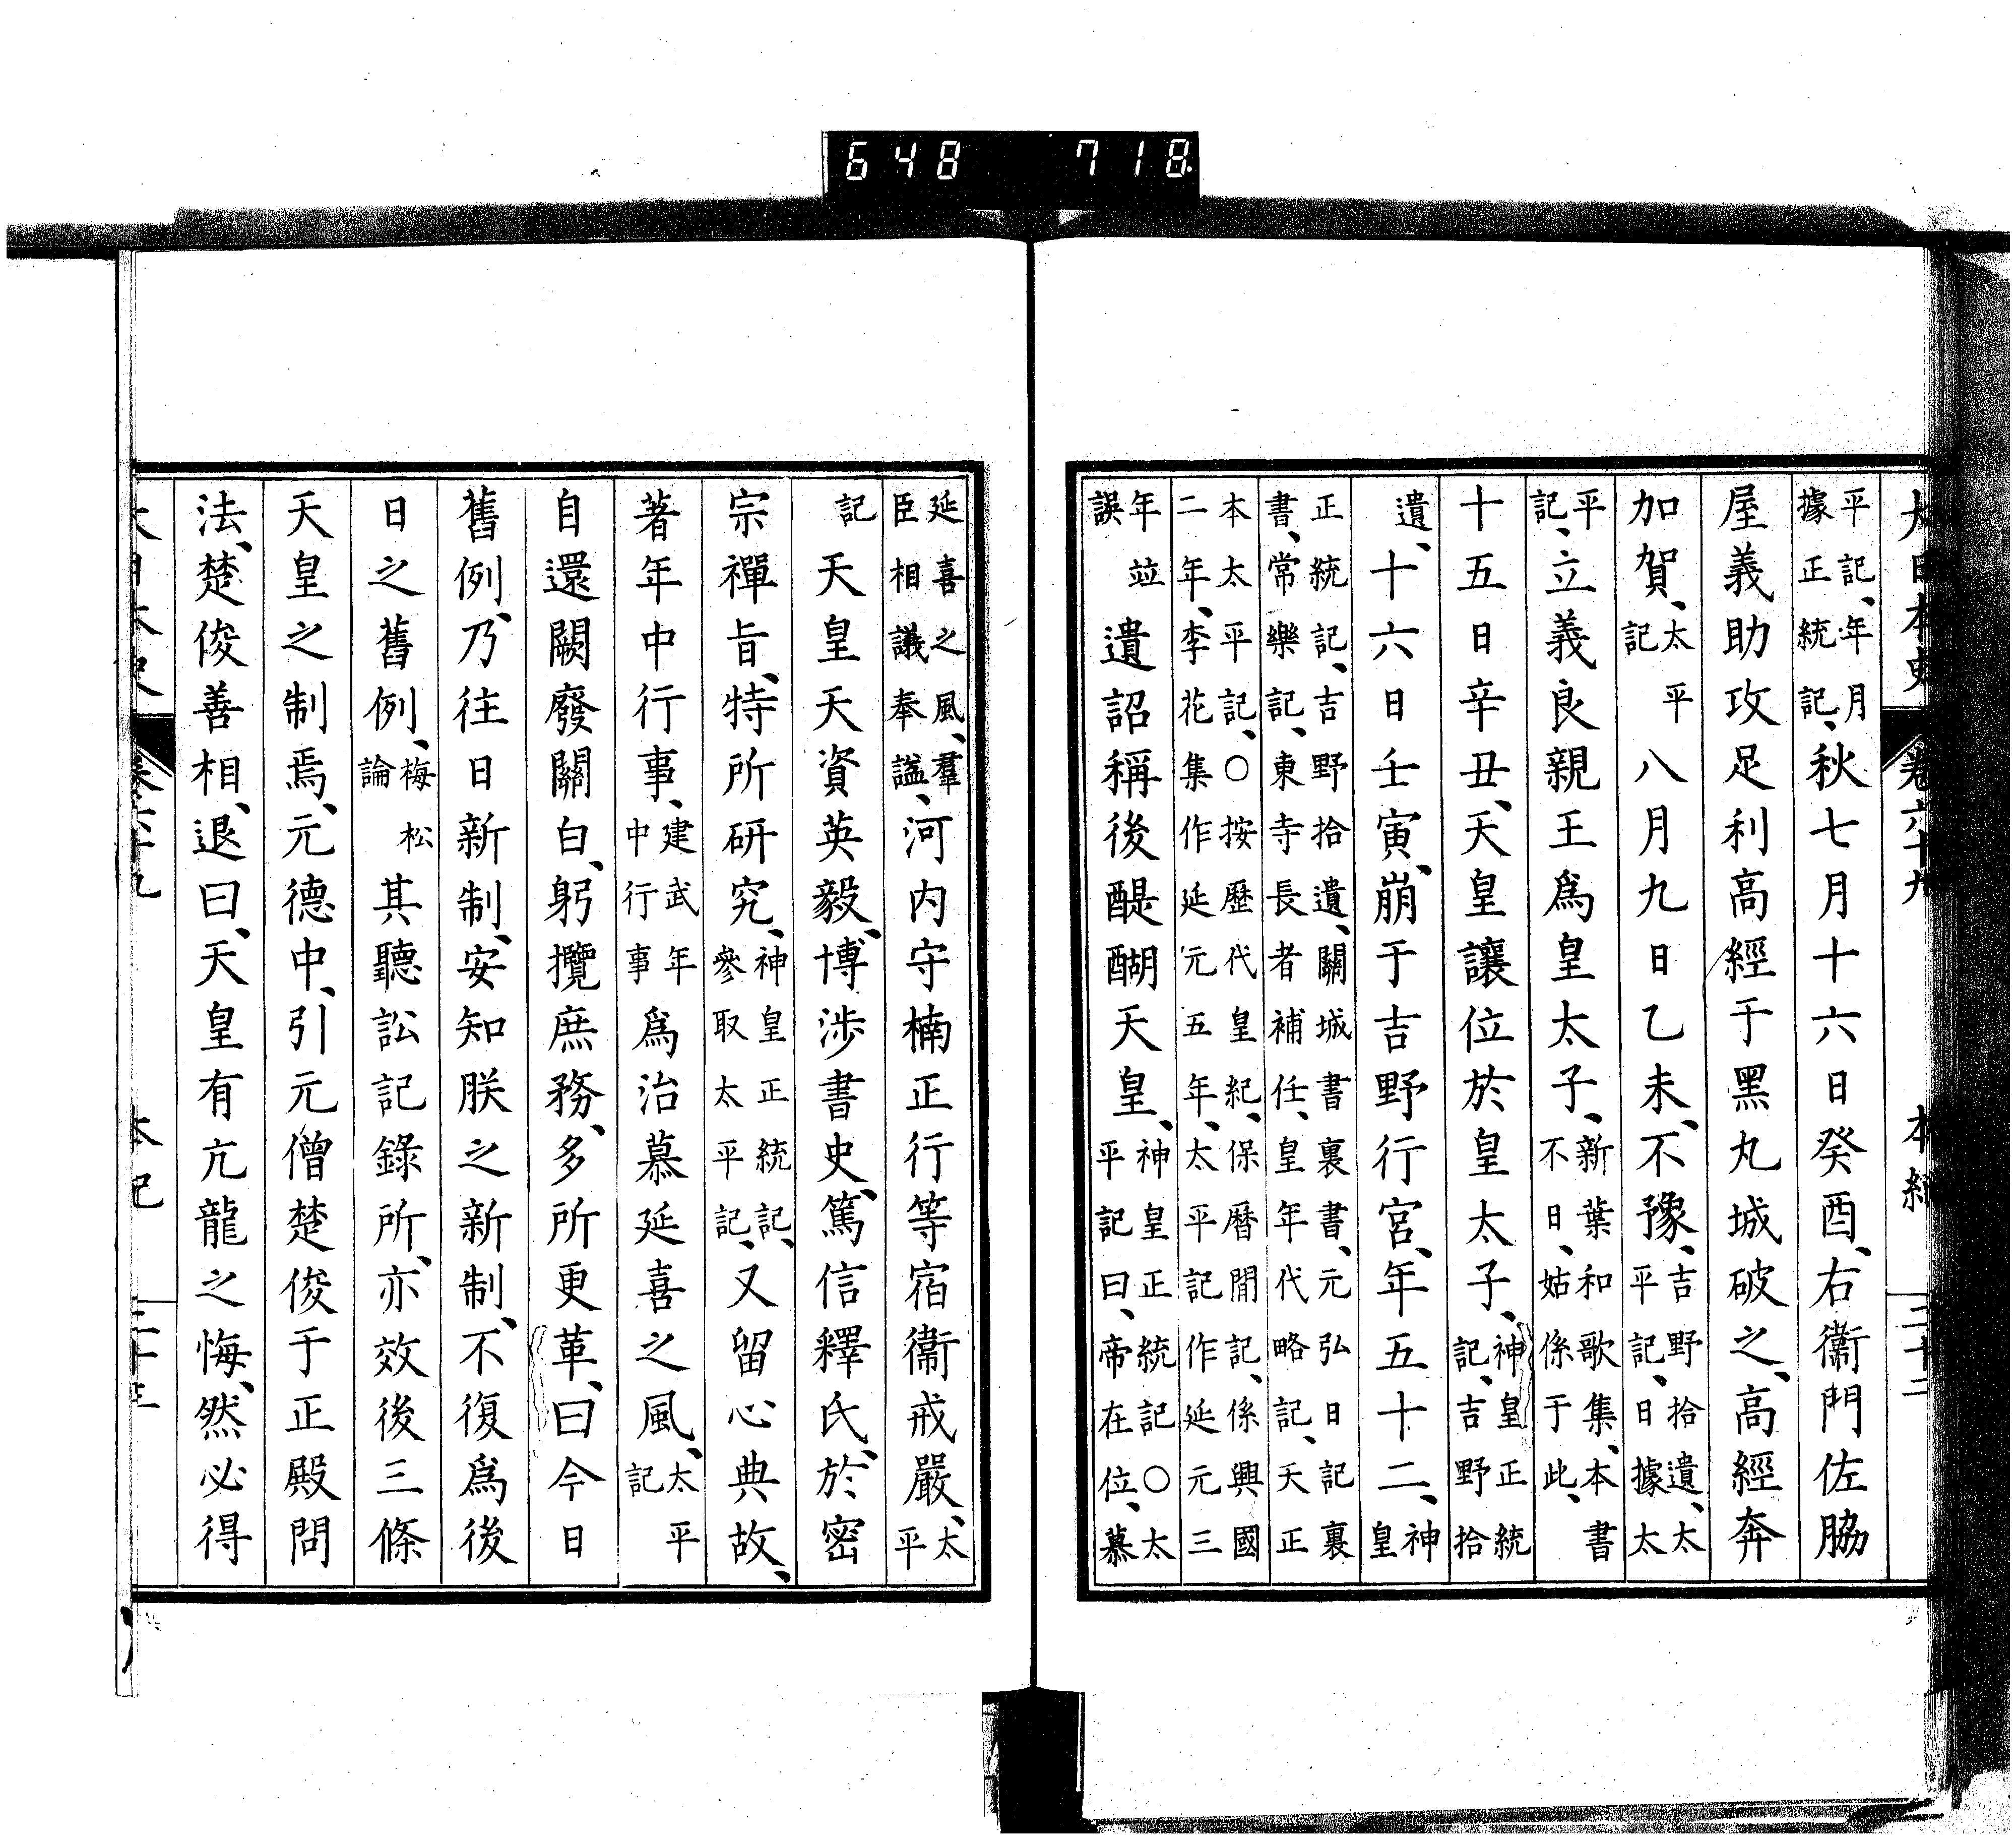 648 718
大日本史 卷六十九 本紀 二十二
平記、年月據正統記、秋七月十六日癸酉、右衞門佐脇
屋義助攻足利高經于黑丸城破之、高經奔
加賀、太平記八月九日乙未、不豫、吉野拾遺、太平記、日據太
平記、立義良親王爲皇太子、新葉和歌集、本書不日、姑係于此、
十五日辛丑、天皇讓位於皇太子、神皇正統記、吉野拾
遺、十六日壬寅、崩于吉野行宮、年五十二、神皇
正統記、吉野拾遺、關城書裏書、元弘日記裏書、常樂記、東寺長者補任、皇年代略記、天正
本太平記、○按歷代皇紀、保曆間記、係興國二年、李花集作延元五年、太平記作延元三
年竝誤遺詔稱後醍醐天皇、神皇正統記○太平記曰、帝在位、慕
延喜之風、羣臣相議奉謚、河內守楠正行等宿衞戒嚴、太平
記天皇天資英毅、博涉書史、篤信釋氏、於密
宗禪旨、特所研究、神皇正統記、參取太平記、又留心典故、
著年中行事、建武年中行事爲治慕延喜之風、太平記
自還闕廢關白、躬攬庶務、多所更革、曰今日
舊例、乃往日新制、安知朕之新制、不復爲後
日之舊例、梅松論其聽訟記錄所、亦效後三條
天皇之制焉、元德中、引元僧楚俊于正殿問
法、楚俊善相、退曰、天皇有亢龍之悔、然必得
大日本史 卷六十九 本紀 二十三